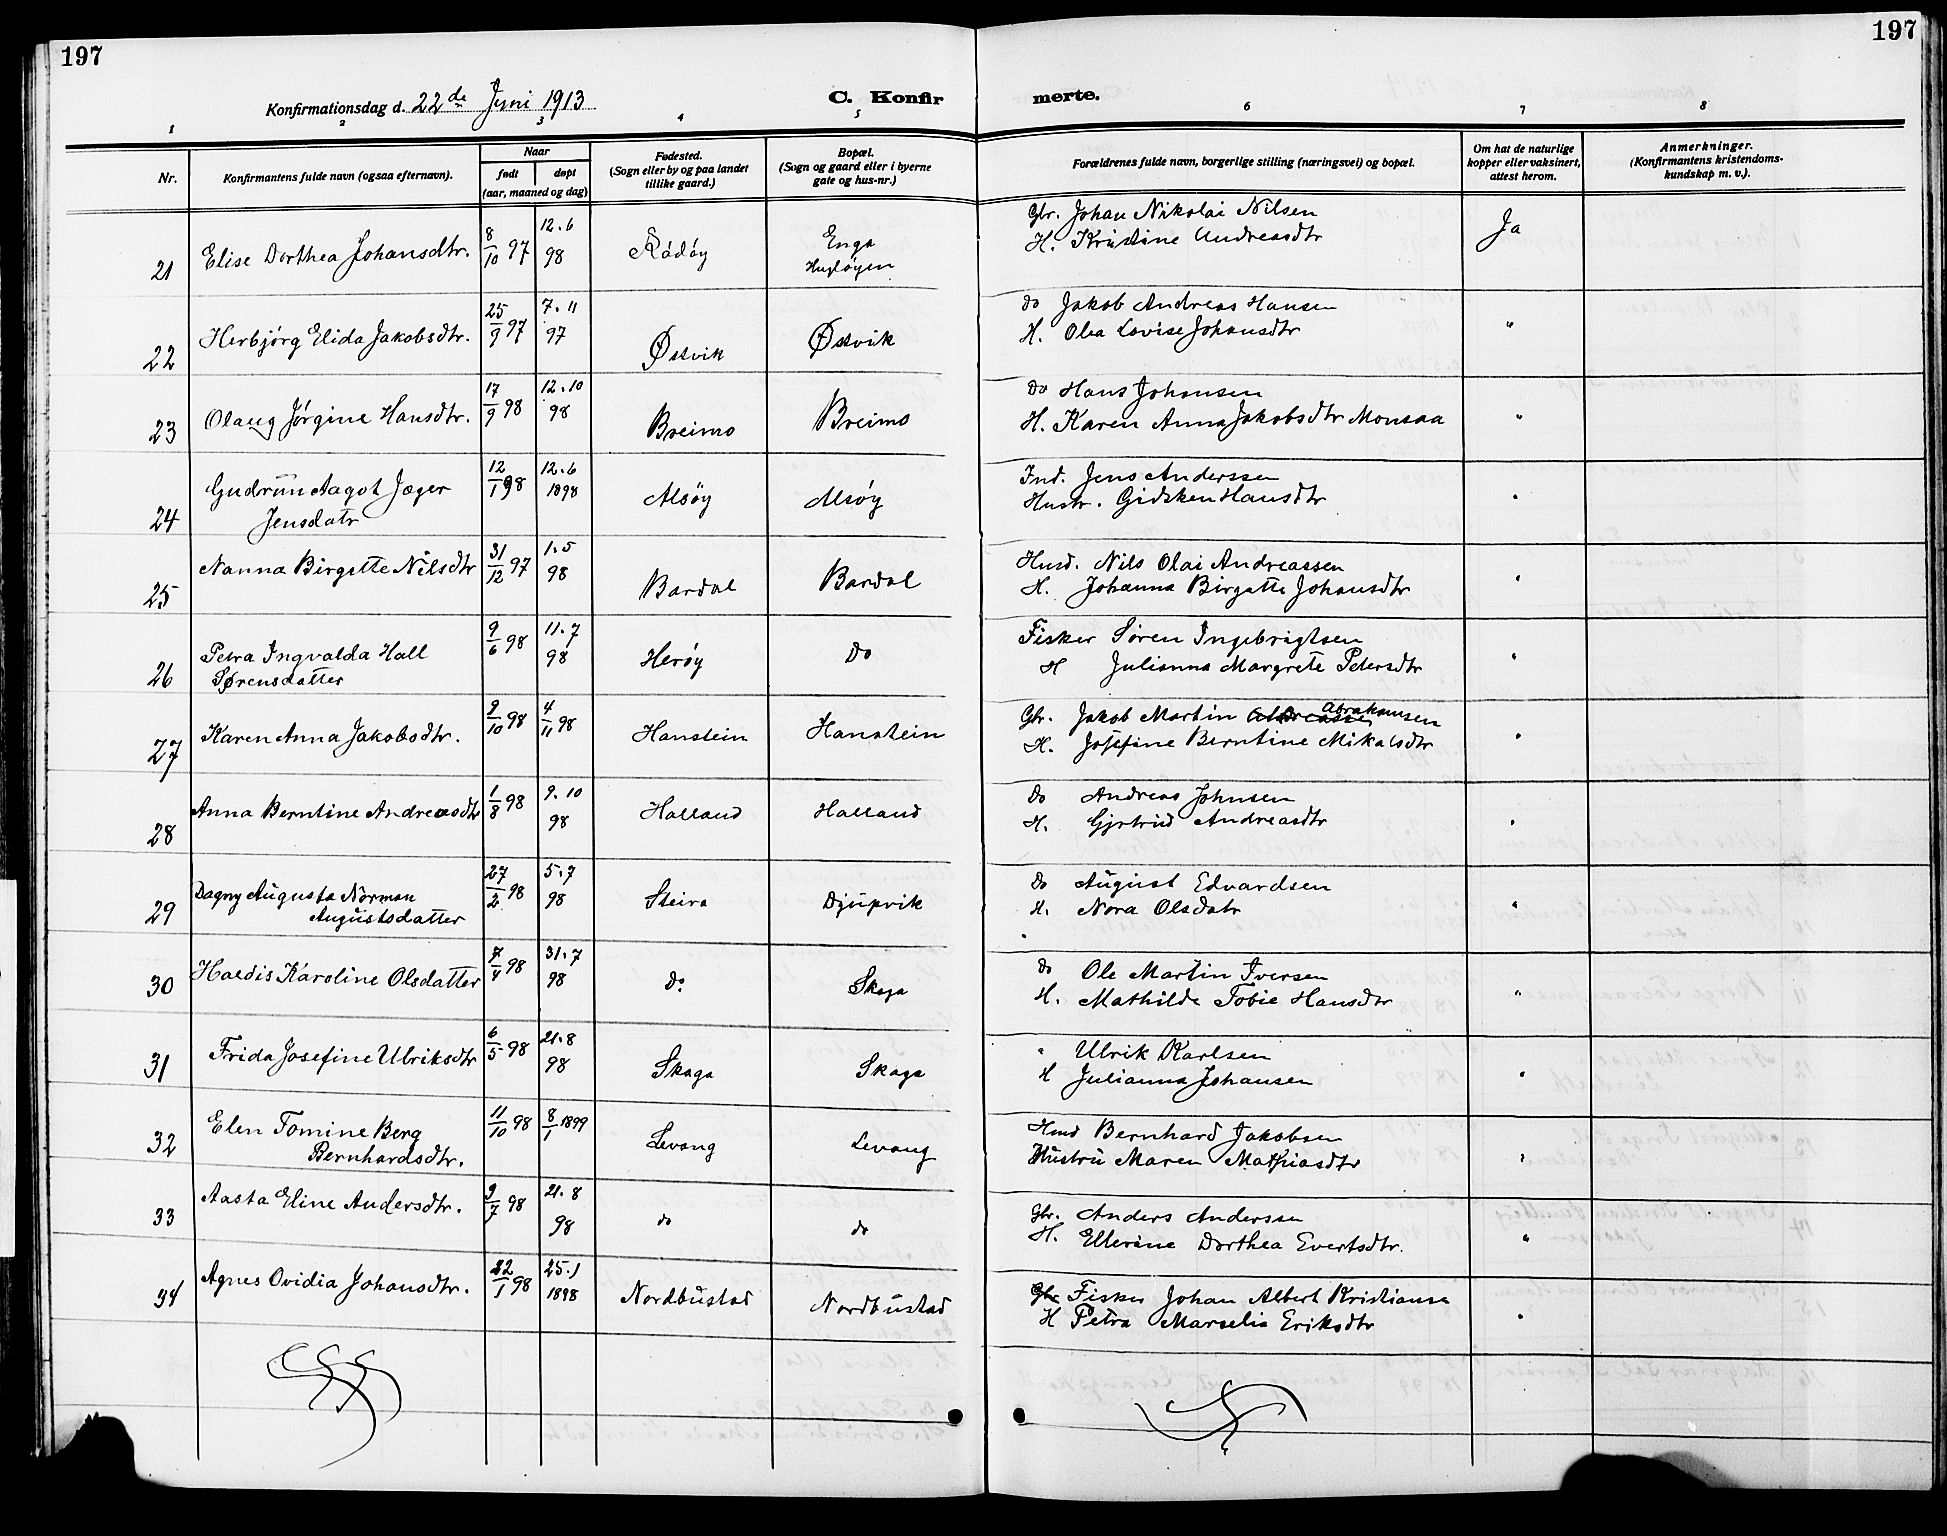 197
197
Konfirmationsdag d. 22de Juni 1913
C. Konfir
merte.
1 2 3 4 5 6 7 8
Nr.
Konfirmantens fulde navn (ogsaa efternavn).
Naar
født døpt
(aar, maaned og dag)
Fødested.
(Sogn eller by og paa landet
tillike gaard.)
Bopæl.
(Sogn og gaard eller i byerne
gate og hus-nr.)
Forældrenes fulde navn, borgerlige stilling (næringsvei) og bopæl.
Om hat de naturlige
kopper eller vaksinert,
attest herom.
Anmerkninger.
(Konfirmantens kristendoms-
kundskap m. v.).
21 Elise Dorthea Johansdtr. 8/10 97 12.6 98 Rødøy Enga
Hugløyen
Gbr. Johan Nikolai Nilsen Ja
H. Kristine Andreasdtr
22 Herbjørg Elida Jakobsdtr. 25/9 97 7.11 97 Østvik Østvik
do Jakob Andreas Hansen "
H. Olea Lovise Johansdtr
23 Olaug Jørgine Hansdtr. 17/9 98 12.10 98 Breimo Breimo
Do Hans Johansen "
H. Karen Anna Jakobsdtr Monsaa
24 Gudrun Aagot Jæger 12/1 98 12.6 1898 Alsøy Alsøy
Jensdatr
Ind. Jens Anderssen "
Hustr. Gidsken Hansdtr
25 Nanna Birgitte Nilsdtr 31/12 97 1.5 98 Bardal Bardal
Husd. Nils Olai Andreassen "
H. Johanna Birgitte Johansdtr
26 Petra Ingvalda Hall 9/6 98 11.7 98 Herøy Do
Sørensdatter
Fisker Søren Ingebrigtsen "
H Julianna Margrete Petersdtr
27 Karen Anna Jakobsdtr. 9/10 98 4/11 98 Hanstein Hanstein
Gbr. Jakob Martin Abrahamsen "
H. Josefine Berntine Mikalsdtr
28 Anna Berntine Andreasdtr 1/8 98 9.10 98 Halland Halland
Do Andreas Johnsen "
H. Gjertrud Andreasdtr
29 Dagny Augusta Norman 27/2 98 5.7 98 Steiro Djupvik
Augustsdatter
Do August Edvardsen "
H. Nora Olsdatr
30 Haldis Karoline Olsdatter 7/4 98 31.7 98 Do Skaga
Do Ole Martin Iversen "
H. Mathilde Tobie Hansdtr
31 Frida Josefine Ulriksdtr 6/5 98 21.8 98 Skaga Skaga
" Ulrik Karlsen "
H Julianna Johansen
32 Elen Tomine Berg 11/10 98 8/1 1899 Levang Levang
Bernhardsdtr.
Husd Bernhard Jakobsen "
Hustru Maren Mathiasdtr
33 Aasta Eline Andersdtr. 9/7 98 21.8 98 do do
Gbr. Anders Anderssen "
H. Ellerine Dorthea Evertsdtr.
34 Agnes Ovidia Johansdtr. 22/1 98 25.1 1898 Nordbustad Nordbustad
Gbr Fisker Johan Albert Kristianse "
H Petra Marselie Eriksdtr